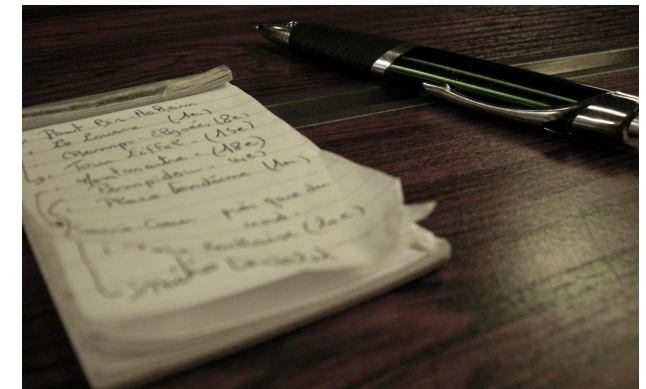 - Pont Bir-Hakeim
- Le Louvre (1er)
- Champs-Elysées (8e)
- Tour Eiffel - (15e)
- Montmartre - (18e)
- Pompidou - 4e)
- Place Vendôme (1er)
Coeur près gare du
nord.
(20e)